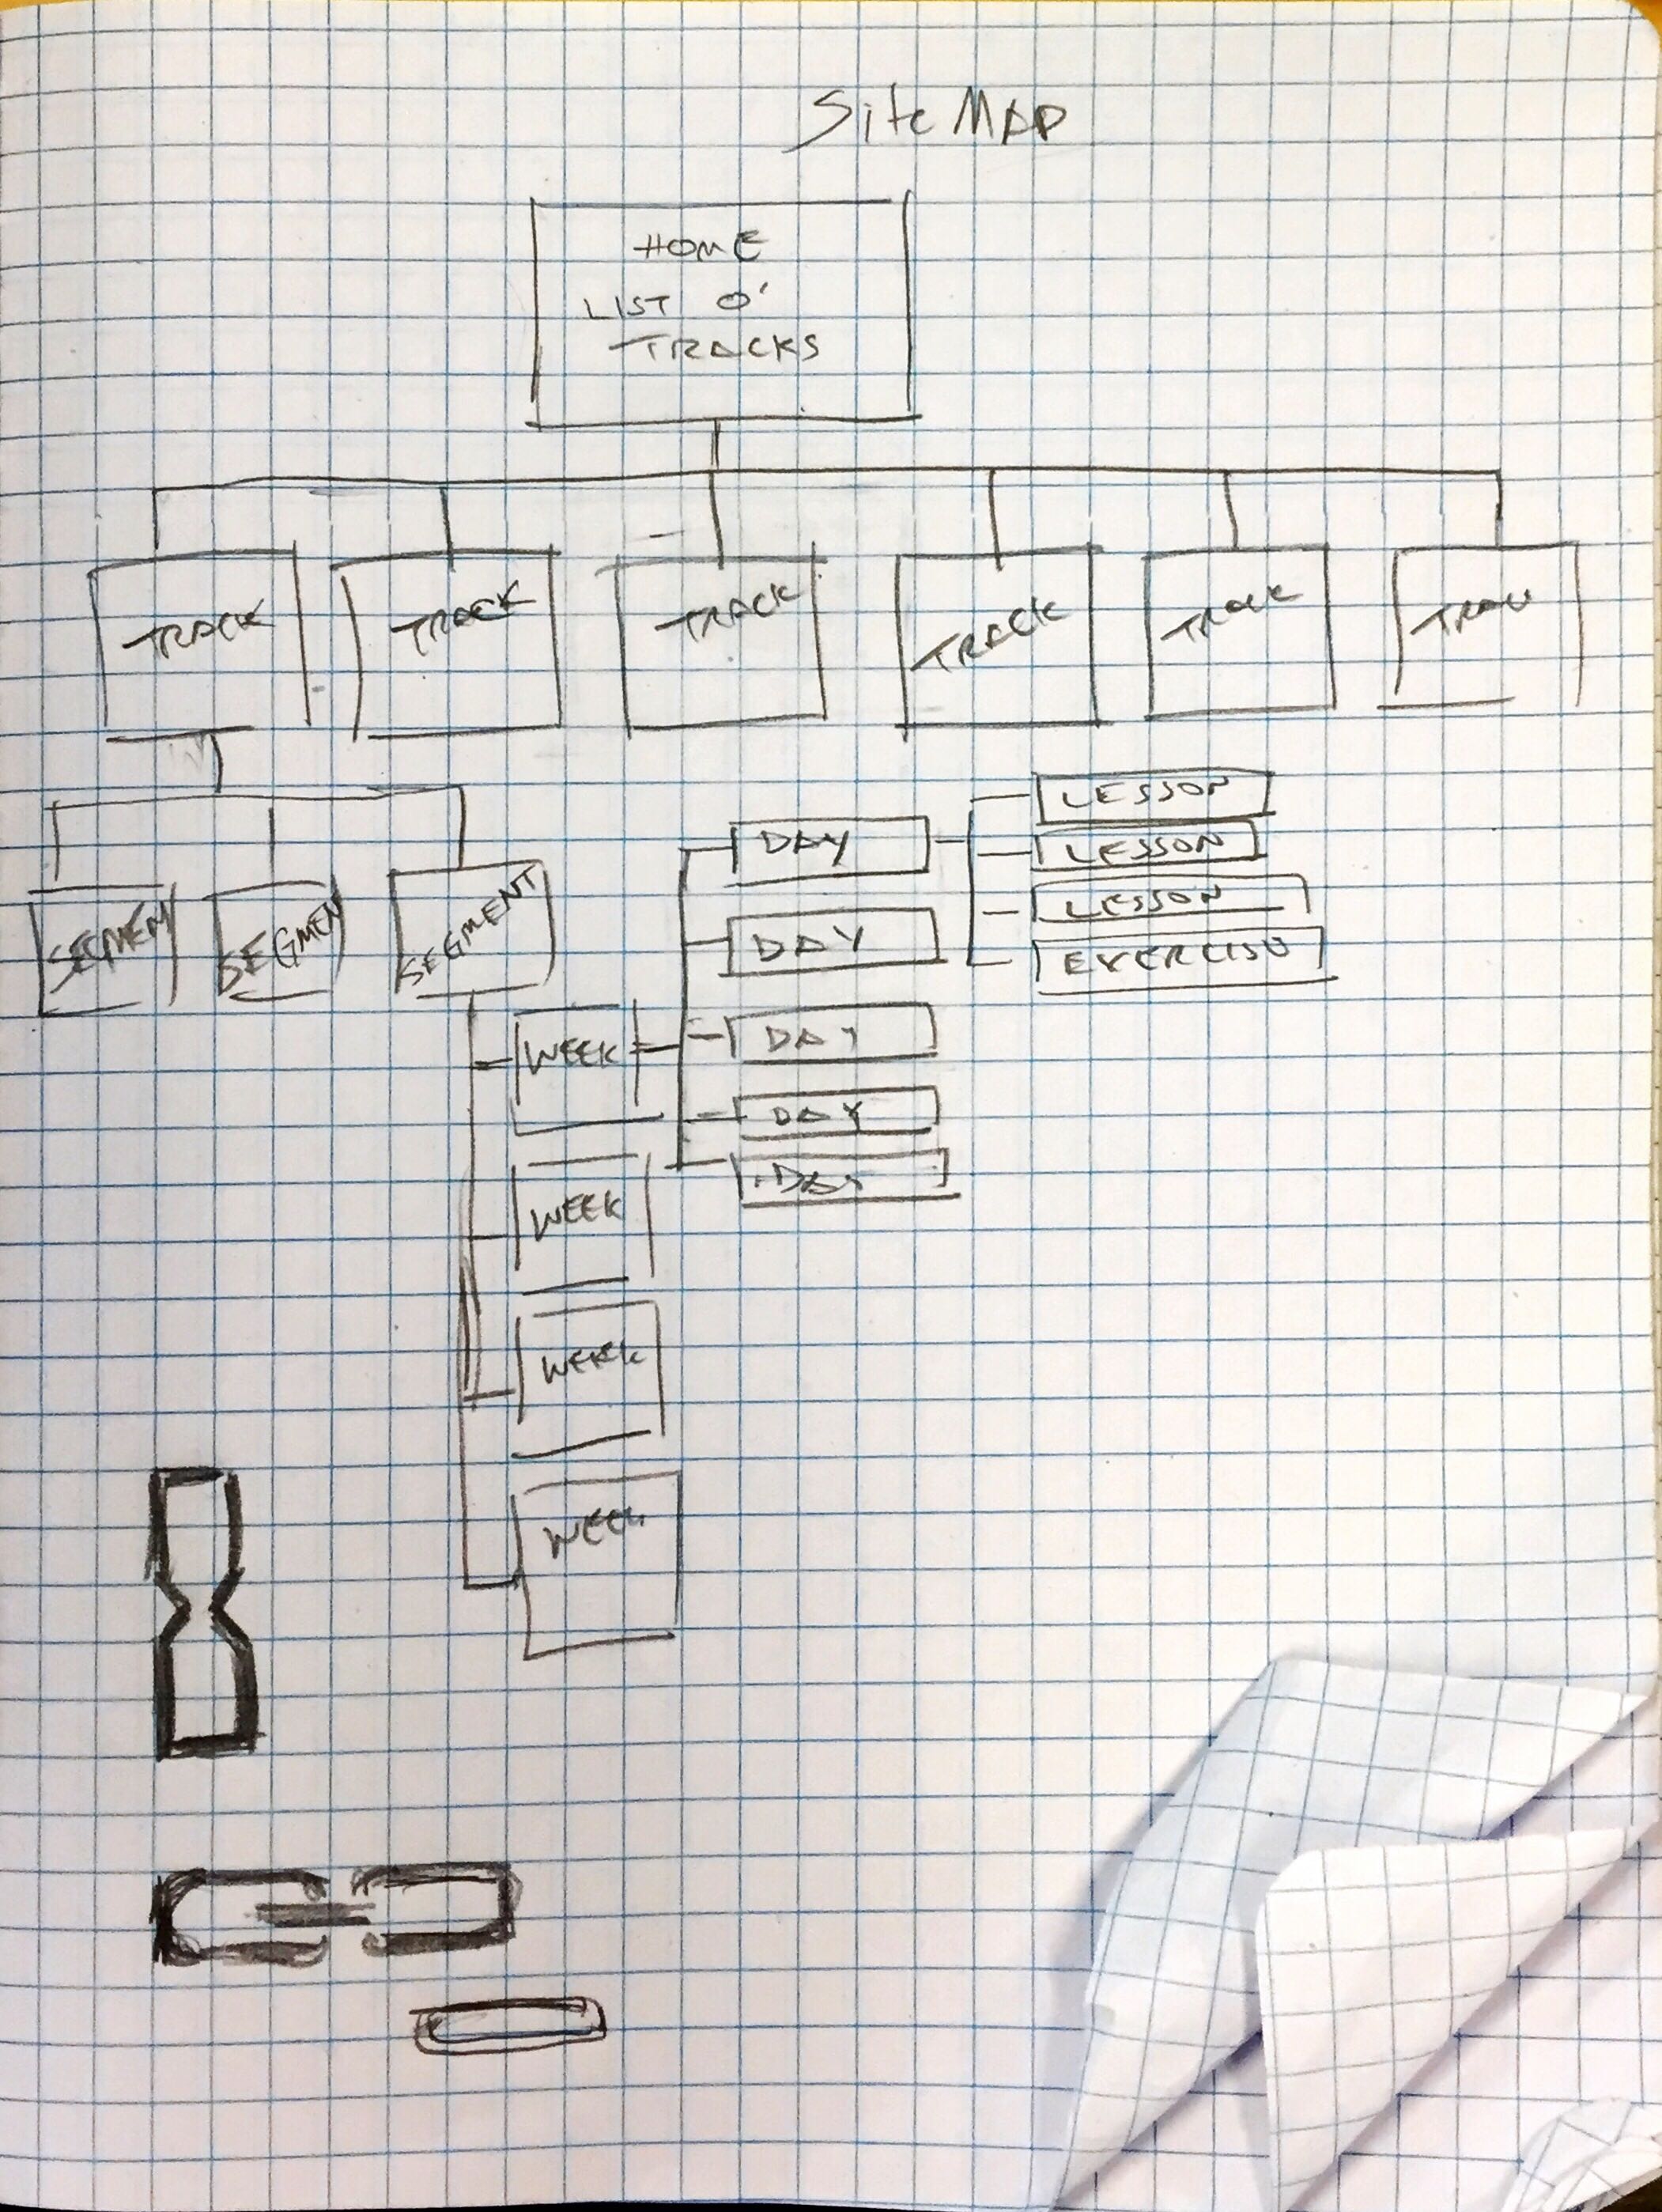 Site Map
HOME
LIST O'
TRACKS
TRACK
TRACK
TRACK
TRACK
TRACK
TRACK
SEGMEN
SEGMEN
SEGMENT
WEEK
WEEK
WEEK
WEEK
DAY
DAY
DAY
DAY
DAY
LESSON
LESSON
LESSON
EXERCISE